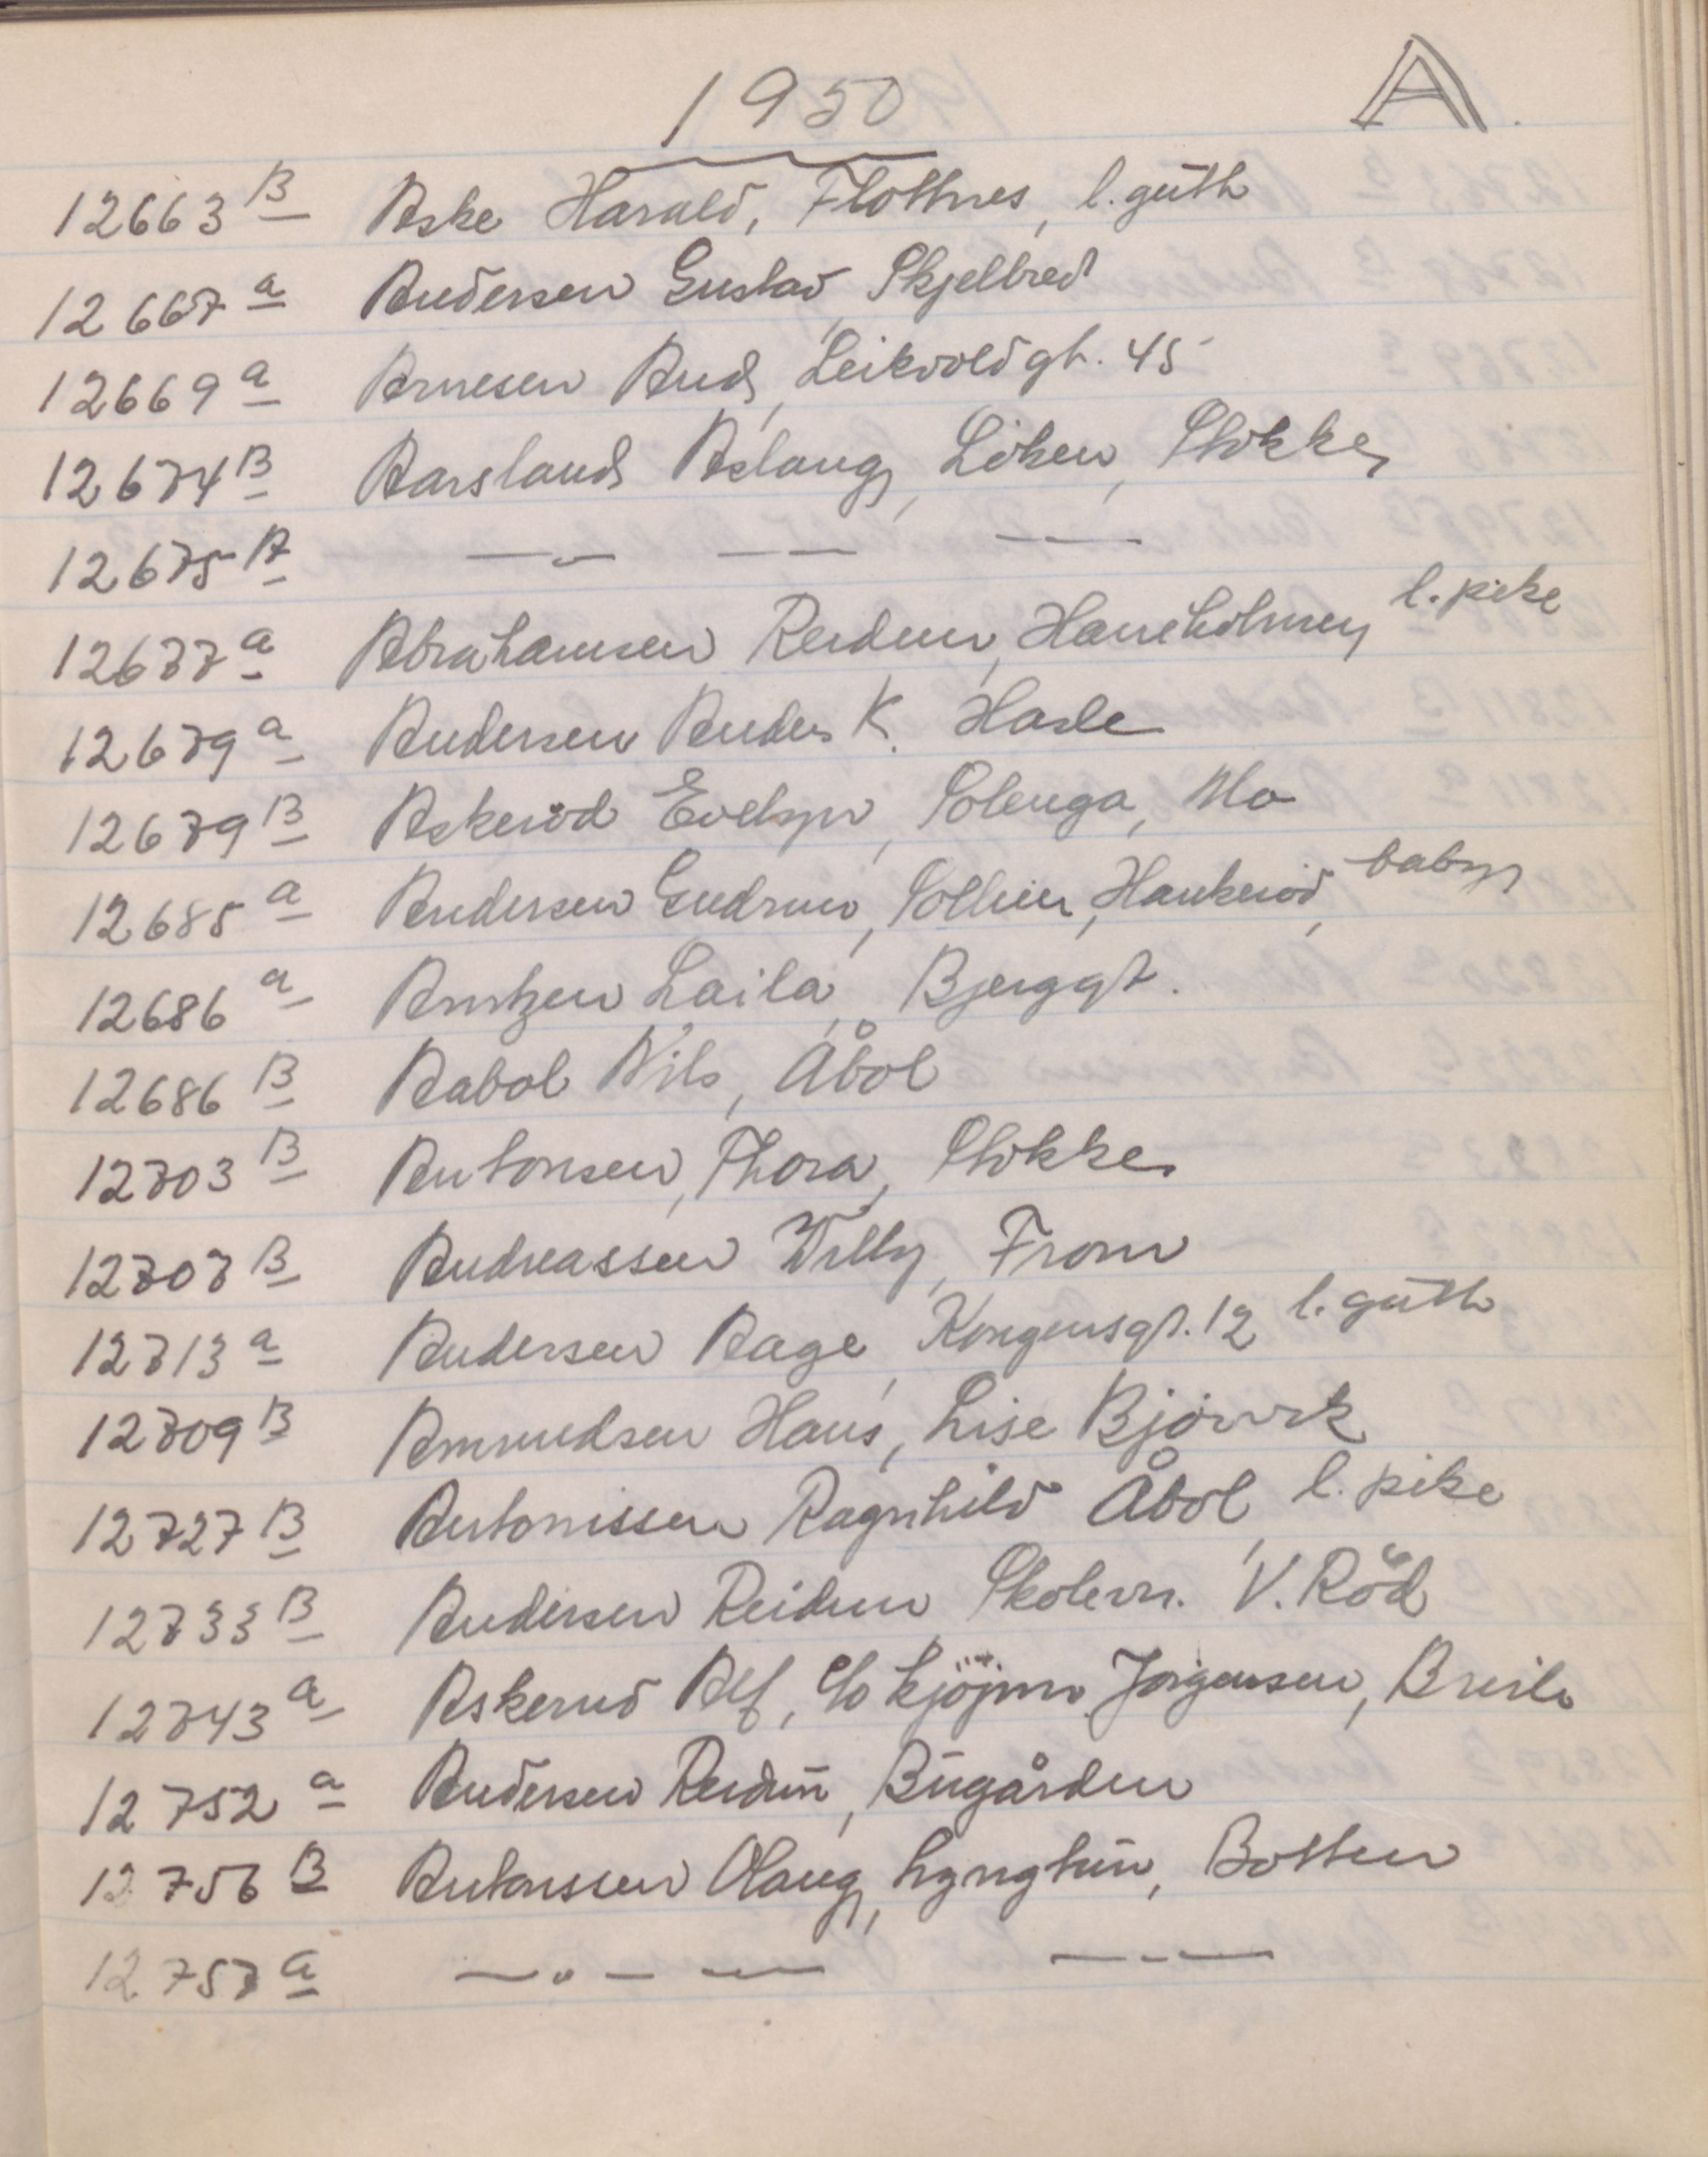 1950 A.
12663 B Aske Harald, Flottnes, l. gutt
12667 a Andersen Gustav, Skjelbred
12669 a Arnesen Arnd, Leikvoldgt. 45
12674 B Aarsland Aslaug, Löken, Stokke
12675 A —〃— — — — —
12677 a Abrahamsen Reidun, Haneholmen l. pike
12679 a Andersen Anders K. Hasle
12679 B Askeröd Evelyn, Solenga, Mo
12685 a Andersen Gudrun, Solheim, Haukeröd, baby
12686 a Arntzen Laila, Bjerggt.
12686 B Aabol Nils, Åbol
12703 B Antonsen, Thora, Stokke
12707 B Andreassen Willy, Fram
12713 a Andersen Aage, Kongensgt. 12 l. gutt
12709 B Amundsen Hans, Lise Bjørvik
12727 B Antonissen Ragnhild Åbol, l. pike
12733 B Andersen Reidun Skolevn. V. Röd
12743 a Askerud Alf, c/o kjöjm. Jørgensen,
12752 a Andersen Reidun, Bugården
12756 B Antonissen Olaug, Lyngtun, Botten
12757 a —〃— — — —